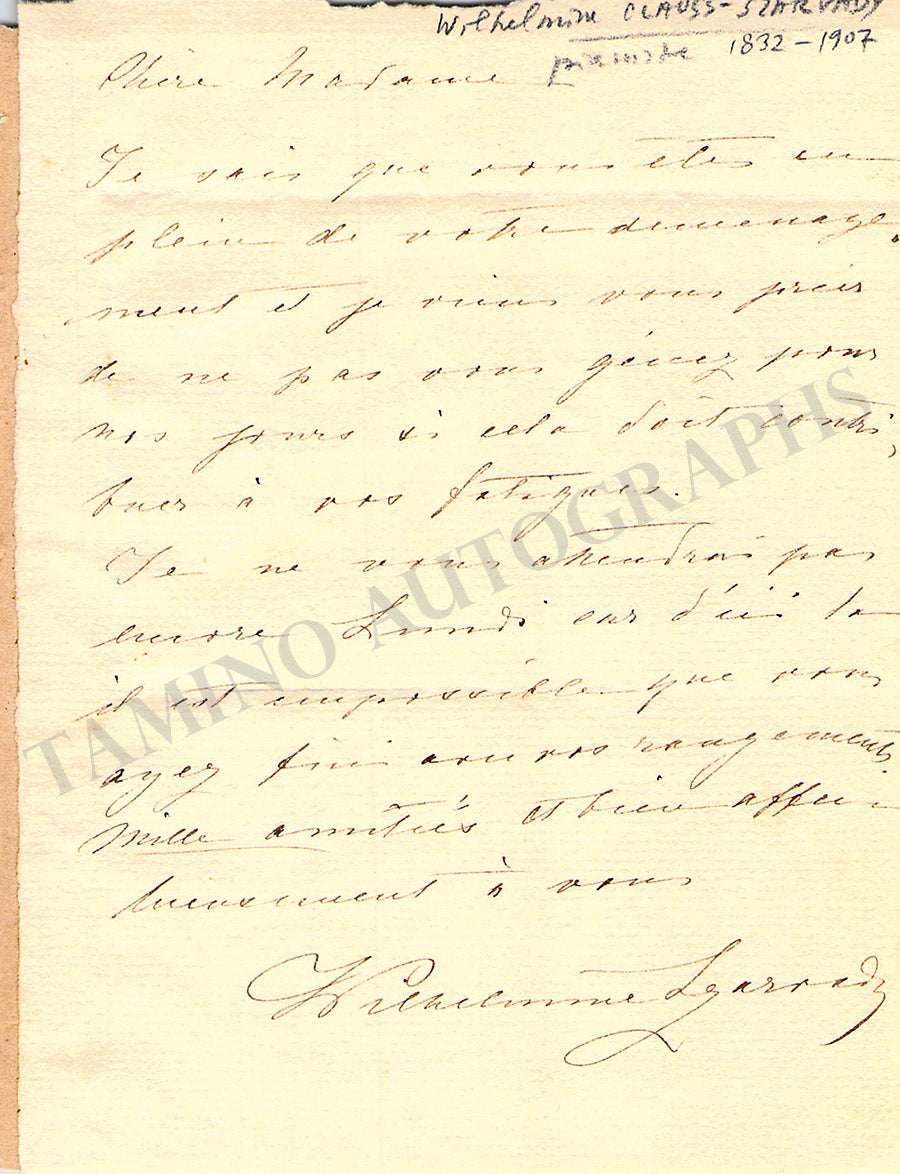 Wilhelmine CLAUSS-SZARVADY
pianiste 1832-1907
Chère Madame
Je sais que vous etes en
plein de votre demenage-
ment et je viens vous prier
de ne pas vous gênez pour
nos jours si cela doit contri-
buer à vos fatigues.
Je ne vous attendrai pas
encore Lundi car d'ici la
il est impossible que vous
ayez fini avec vos rangements
Mille amitiés et bien affec-
tueusement à vous
Wilhelmine Szarvady
TAMINO AUTOGRAPHS